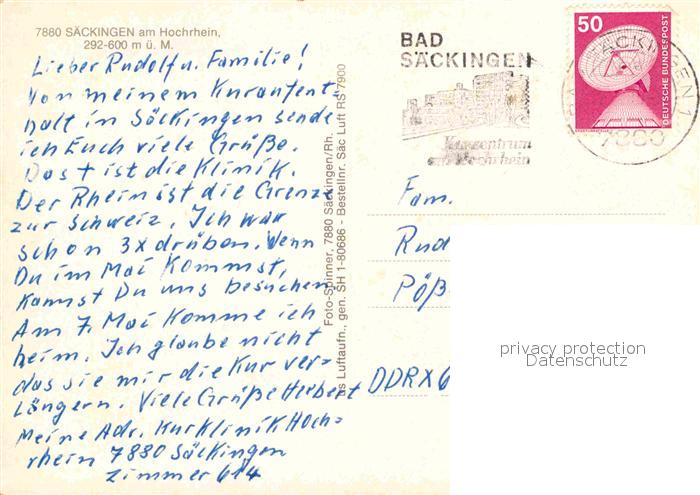 7880 SÄCKINGEN am Hochrhein,
292-600 m ü. M.
Lieber Rudolf u. Familie!
Von meinem Kuraufent-
halt in Säckingen sende
ich Euch viele Grüße.
Das + ist die Klinik.
Der Rhein ist die Grenze
zur Schweiz. Ich war
schon 3x drüben. Wenn
Du im Mai kommst,
kannst Du uns besuchen
Am 7. Mai komme ich
heim. Ich glaube nicht
das sie mir die Kur ver=
längern. Viele Grüße Herbert
Meine Adr. Kurklinik Hoch=
rhein 7880 Säckingen
Zimmer 614
Foto-Spinner, 7880 Säckingen/Rh.
Luftaufn., gen. SH 1-80686 - Bestellnr. Säc Luft RS 7900
BAD
SÄCKINGEN
Kurzentrum
am Hochrhein
50
DEUTSCHE BUNDESPOST
SÄCKINGEN 1
7880
Fam.
Rud
Pöß
DDR X 6
privacy protection
Datenschutz